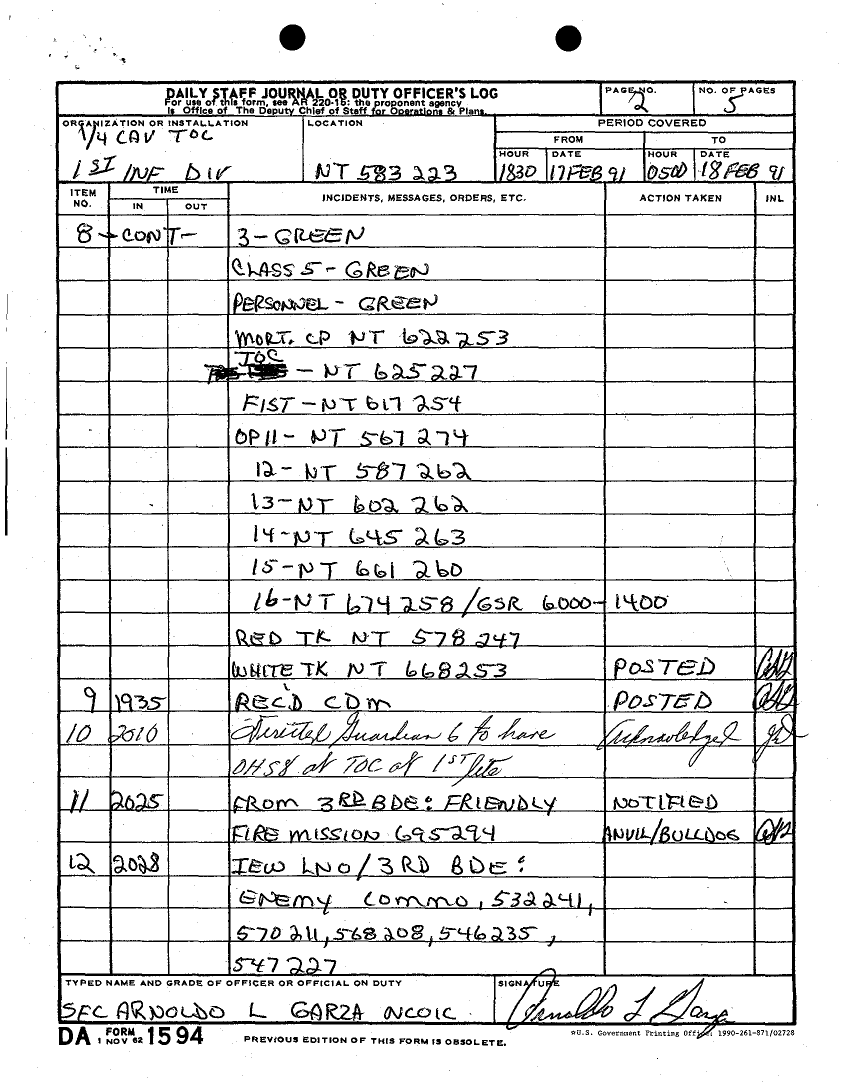 DAILY STAFF JOURNAL OR DUTY OFFICER'S LOG
For use of this form, see AR 220-15; the proponent agency
is Office of The Deputy Chief of Staff for Operations & Plans.
PAGE NO.
2
NO. OF PAGES
5
ORGANIZATION OR INSTALLATION
1/4 CAV TOC
1ST INF DIV
LOCATION
NT 583 223
PERIOD COVERED
FROM TO
HOUR DATE HOUR DATE
1830 17 FEB 91 0500 18 FEB 91
ITEM NO. TIME INCIDENTS, MESSAGES, ORDERS, ETC. ACTION TAKEN INL
IN OUT
8 - CONT- 3 - GREEN
CLASS 5 - GREEN
PERSONNEL - GREEN
MORT. CP NT 622253
TOC
- NT 625227
FIST - NT 617 254
OP11 - NT 567 274
12 - NT 587 262
13 - NT 602 262
14 - NT 645 263
15 - NT 661 260
16 - NT 674 258 / GSR 6000-1400
RED TK NT 578 247
WHITE TK NT 668253 POSTED
9 1935 REC'D CDM POSTED
10 2010 Directed Guardian 6 to have Acknowledged
OH58 at TOC at 1ST lite
11 2025 FROM 3RD BDE: FRIENDLY NOTIFIED
FIRE MISSION 695294 ANVIL/BULLDOG
12 2028 IEW LNO/3RD BDE:
ENEMY COMMO, 532241,
570211, 568208, 546235,
547227
TYPED NAME AND GRADE OF OFFICER OR OFFICIAL ON DUTY
SFC ARNOLDO L GARZA NCOIC
SIGNATURE
Arnoldo L Garza
DA FORM 1594
1 NOV 62
PREVIOUS EDITION OF THIS FORM IS OBSOLETE.
☆U.S. Government Printing Office: 1990-261-871/02728